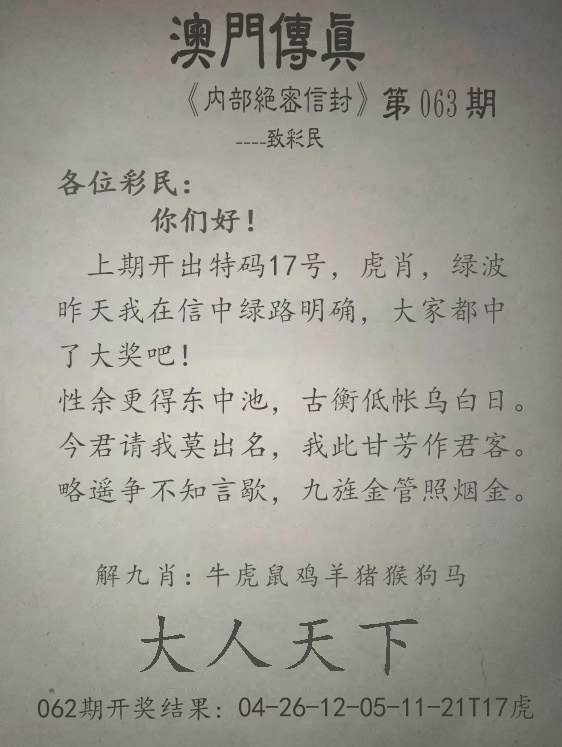 澳門傳真
《内部絕密信封》第063期
----致彩民
各位彩民：
你们好！
上期开出特码17号，虎肖，绿波
昨天我在信中绿路明确，大家都中
了大奖吧！
性余更得东中池，古衡低帐乌白日。
今君请我莫出名，我此甘芳作君客。
略遥争不知言歇，九旌金管照烟金。
解九肖：牛虎鼠鸡羊猪猴狗马
大人天下
062期开奖结果：04-26-12-05-11-21T17虎